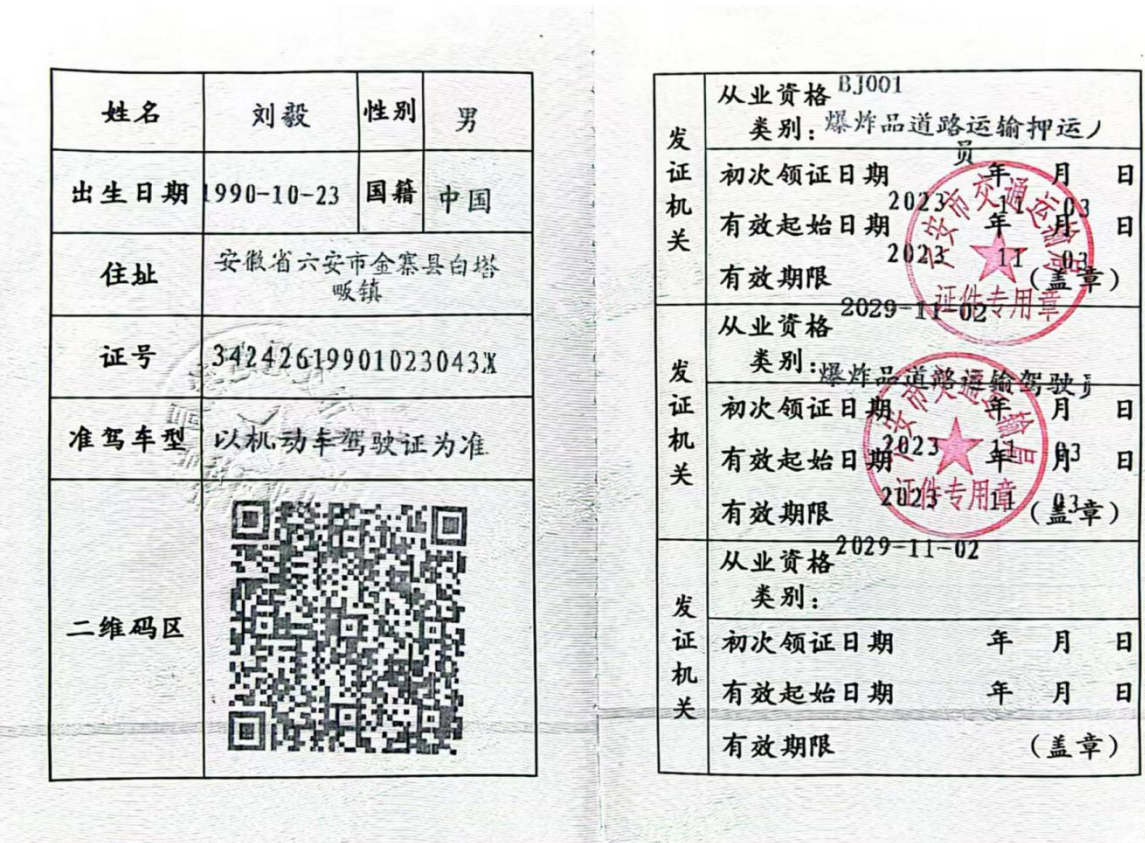 姓名 刘毅 性别 男
出生日期 1990-10-23 国籍 中国
住址 安徽省六安市金寨县白塔
畈镇
证号 34242619901023043X
准驾车型 以机动车驾驶证为准
二维码区
发证机关
从业资格 BJ001
类别: 爆炸品道路运输押运人
员
初次领证日期 年 月 日
2023 11 03
有效起始日期 年 月 日
2023 11 03
有效期限 (盖章)
2029-11-02
六安市交通运输局
证件专用章
发证机关
从业资格
类别: 爆炸品道路运输驾驶员
初次领证日期 年 月 日
2023 11 03
有效起始日期 年 月 日
2023 11 03
有效期限 (盖章)
2029-11-02
六安市交通运输局
证件专用章
发证机关
从业资格
类别:
初次领证日期 年 月 日
有效起始日期 年 月 日
有效期限 (盖章)